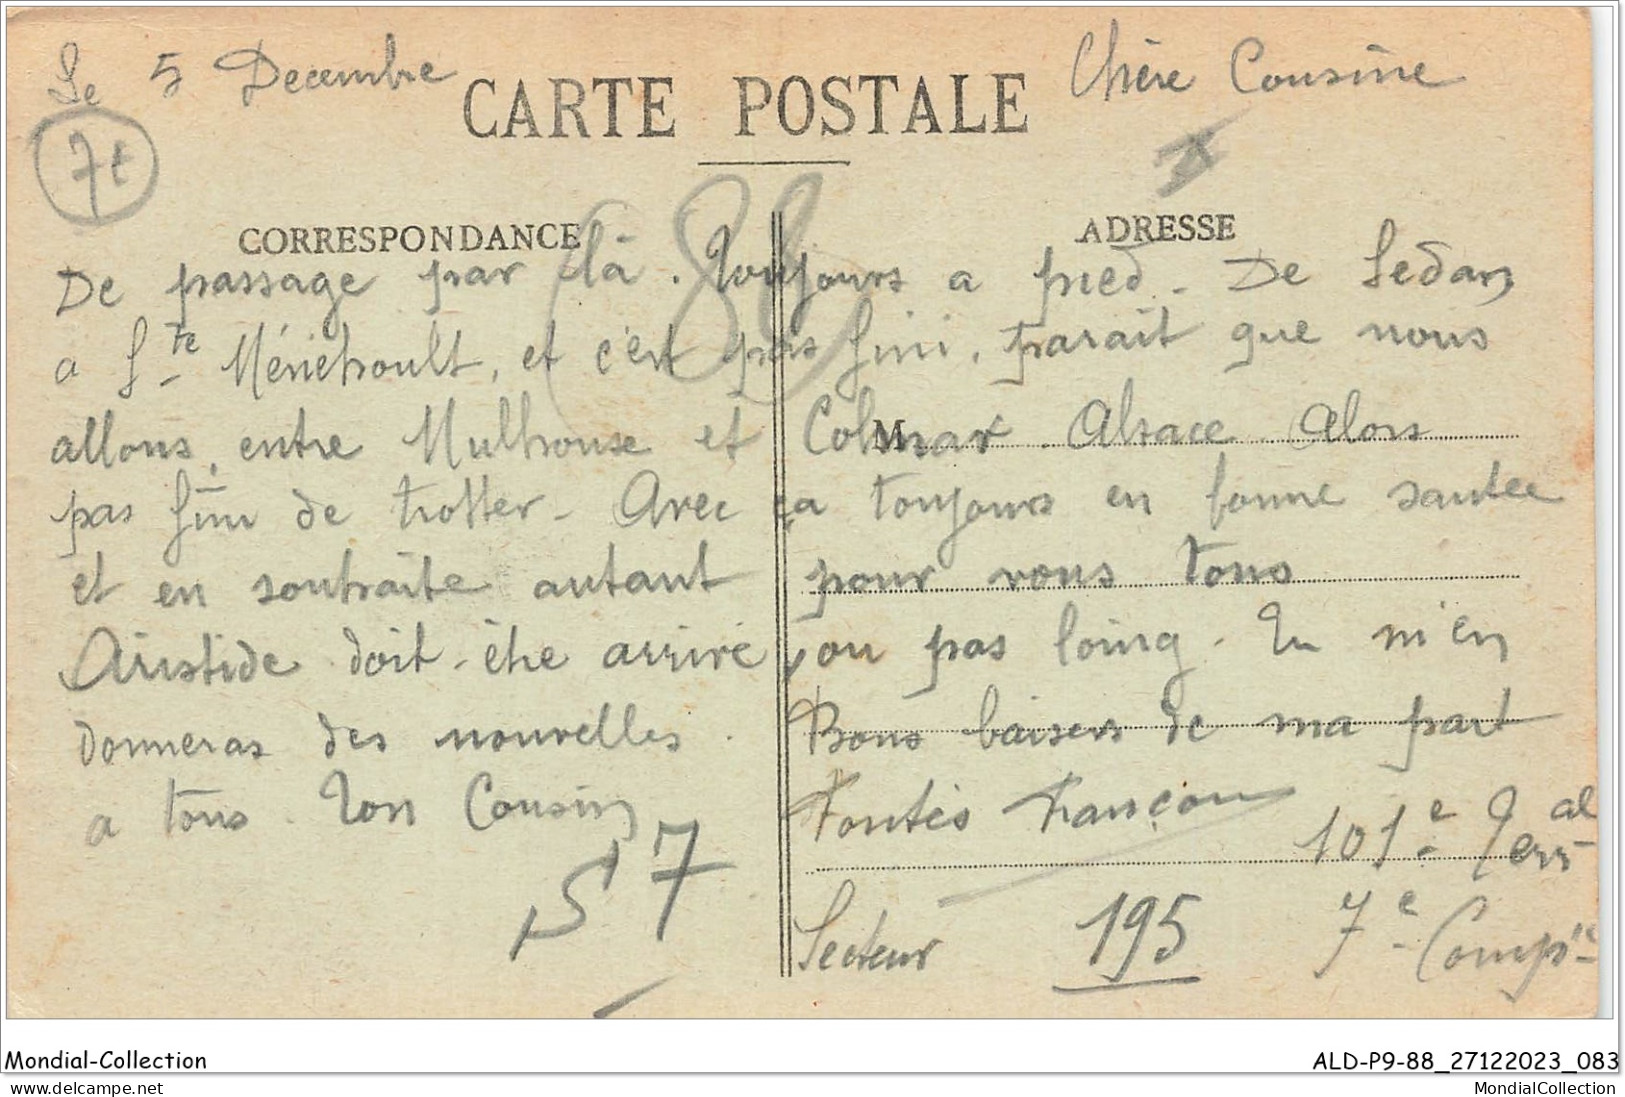 Le 5 Decembre
Chère Cousine
CARTE POSTALE
7t
88
CORRESPONDANCE
ADRESSE
De passage par là. Toujours a pied. De Sedan
a Ste Ménéhoult, et c'est pas fini, parait que nous
allons, entre Mulhouse et Colmar. Alsace. Alors
M
pas fini de trotter. Avec ça toujours en bonne santee
et en souhaite autant pour vous tous
Aristide doit être arrivé, ou pas loing. Tu m'en
donneras des nouvelles. Bons baisers de ma part
a tous. Ton Cousin Fontès Françou
S 7
101e Terral
Secteur 195 7e Compie
Mondial-Collection
ALD-P9-88_27122023_083
www.delcampe.net
MondialCollection